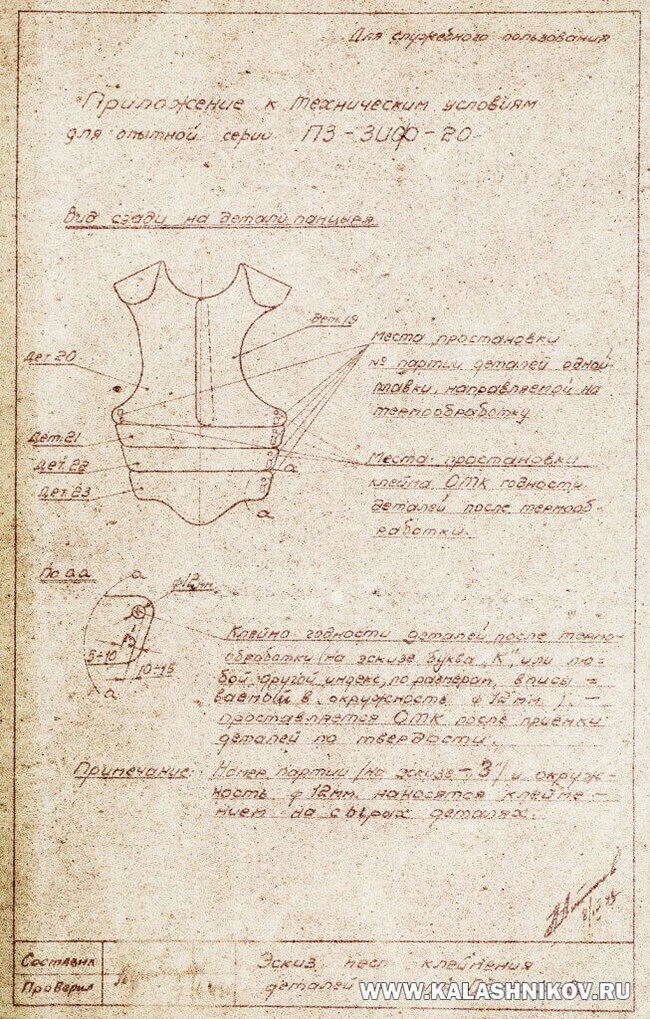 Для служебного пользования
Приложение к техническим условиям
для опытной серии ПЗ-ЗИФ-20
Вид сзади на детали панцыря
Дет.19
Дет.20
Места простановки
№ партии деталей одной
плавки, направляемой на
термообработку
Дет.21
Дет.22
Дет.23
а
а
Места простановки
клейма ОТК годности
деталей после термооб-
работки.
По аа
а
ф12мм.
З
5÷10
10÷15
а
Клеймо годности деталей после термо-
обработки (на эскизе буква "К", или лю-
бой другой индекс, по размерам, вписы=
ваемый в окружность ф 12 мм ). —
проставляется ОТК после приемки
деталей по твердости.
Примечание: Номер партии (на эскизе-"З") и окруж-
ность ф 12мм. наносятся клейме-
нием на сырых деталях.
Составил
Проверил
Эскиз мест клеймения
деталей
WWW.KALASHNIKOV.RU